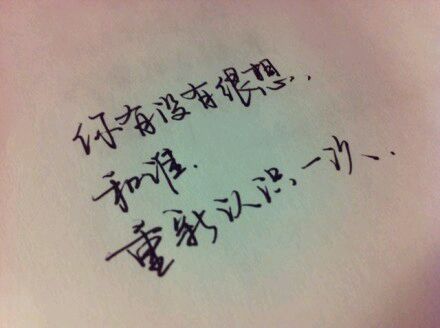 你有没有很想..
和谁.
重新认识一次、.